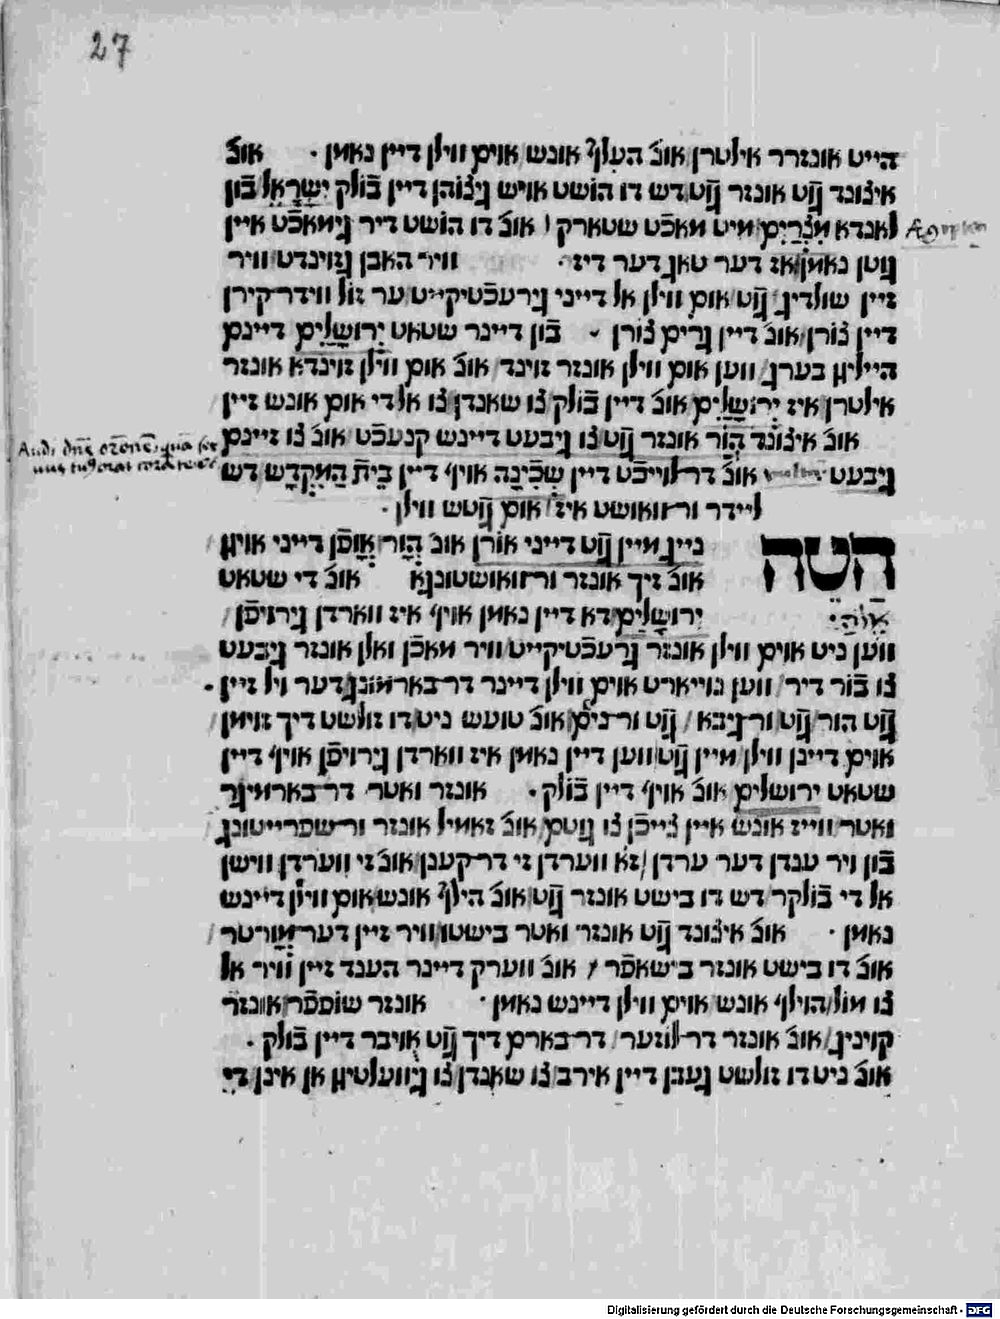 27
הייט אונזרר אילטרן אונ׳ העלף אונש אוים ווילן דיין נאמן · אונ׳
איצונד גוט אונזר גוט דש דו הושט אויש גיצוהן דיין בֿולק יִשְׂרָאֵל בֿון
לאנדא מִצְרַיִם מיט מאכֿט שטארק / אונ׳ דו הושט דיר גימאכֿט איין
גוטן נאמן / אז דער טאג דער דיז · וויר האבן גזוינדט וויר
זיין שולדיג גוט אום ווילן אל דייני גירעכֿטיקייט ער זול ווידר קירן
דיין צורן / אונ׳ דיין גרים צורן · בֿון דיינר שטאט יְרוּשָׁלַיִם דיינם
הייליגן בערג / ווען אום ווילן אונזר זוינד / אונ׳ אום ווילן זוינדא אונזר
אילטרן איז יְרוּשָׁלַיִם אונ׳ דיין בֿולק צו שאנדן צו אלדי אום אונש זיין
אונ׳ איצונד הור אונזר גוט צו גיבעט דיינש קנעכֿט אונ׳ צו זיינם
גיבעט · אונ׳ דרלוייכֿט דיין שְׁכִינָה אויף דיין בֵּית הַמִּקְדָּשׁ דש
ליידר ורוואושט איז / אום גוטש ווילן ·
הטה נייג מיין גוט דייני אורן אונ׳ הור אופֿן דייני אויגן
אונ׳ זיך אונזר ורוואושטונגא אונ׳ די שטאט
אלהי ירושלים דא דיין נאמן אויף איז ווארדן גירויפֿן /
ווען ניט אוים ווילן אונזר גרעכֿטיקייט וויר מאכֿן ואלן אונזר גיבעט
צו בֿור דיר / ווען נוייארט אוים ווילן דיינר דרבארמונג דער ויל זיין ·
גוט הור גוט ורגיבא / גוט ורנים / אונ׳ טועש ניט דו זולשט דיך זוימן
אוים דיינן ווילן מיין גוט ווען דיין נאמן איז ווארדן גירויפֿן אויף דיין
שטאט ירושלים אונ׳ אויף דיין בֿולק · אונזר ואטר דרבארמיגר
ואטר ווייז אונש איין צייכֿן צו גוטם אונ׳ זאמיל אונזר ורשפרייטונג
בֿון ויר ענדן דער ערדן / זא ווערדן זי דרקענן אונ׳ זי ווערדן ווישן
אל די בֿולקר דש דו בישט אונזר גוט אונ׳ הילף אונש אום ווילן דיינש
נאמן · אונ׳ איצונד גוט אונזר ואטר בישטו / וויר זיין דער מורטר
אונ׳ דו בישט אונזר בישאפֿר / אונ׳ ווערק דיינר הענד זיין וויר אל
צו מול / הוילף אונש אוים ווילן דיינש נאמן · אונזר שופֿפֿר אונזר
קויניג / אונ׳ אונזר דרלוזער / דרבארם דיך גוט אויבר דיין בֿולק ·
אונ׳ ניט דו זולשט געבן דיין אירב צו שאנדן צו גיוועלטיגן אן אינן די
Digitalisierung gefördert durch die Deutsche Forschungsgemeinschaft · DFG